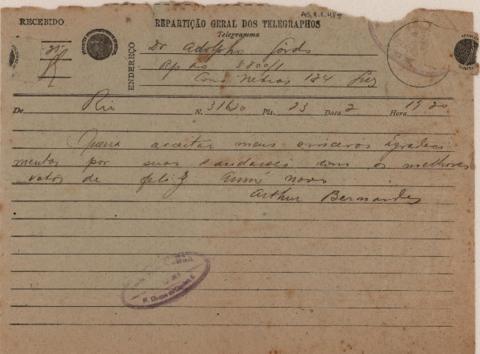 RECEBIDO
REPARTIÇÃO GERAL DOS TELEGRAPHOS
Telegramma
ENDEREÇO
Dr Adolpho
Rio 8800/1
134
De Rio N. 31620 Pls. 23 Data 2 Hora 19 20
Queira aceitar mais sinceros agradeci
mentos por suas saudações com os melhores
votos de feliz anno novo
Arthur Bernardes